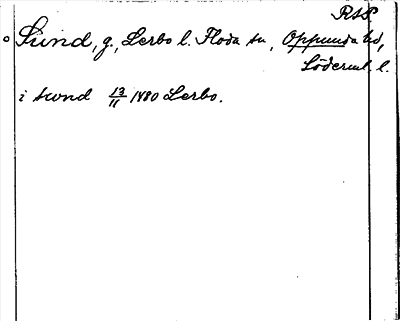 RSP.
Sund, g., Lerbo l. Floda sn, Oppunda hd,
Söderml. l.
i swnd 13/11 1480 Lerbo.